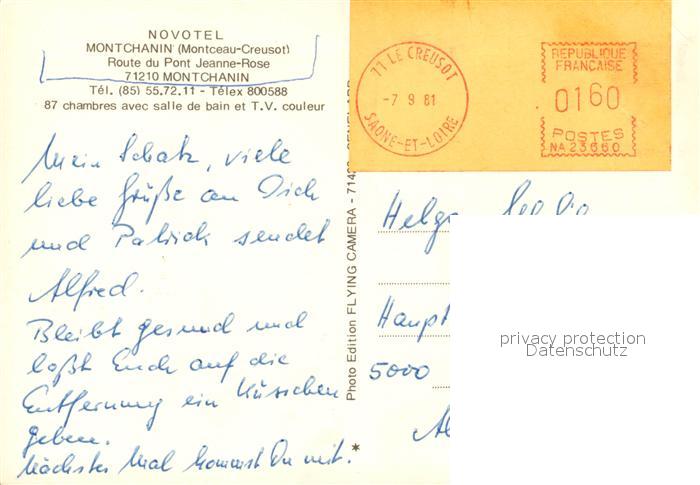 NOVOTEL
MONTCHANIN (Montceau-Creusot)
Route du Pont Jeanne-Rose
71210 MONTCHANIN
Tél. (85) 55.72.11 - Télex 800588
87 chambres avec salle de bain et T.V. couleur
Mein Schatz, viele
liebe Grüße an Dich
und Patrick sendet
Alfred.
Bleibt gesund und
laßt Euch auf die
Entfernung ein Küsschen
geben.
Nächstes Mal kommst Du mit. *
Photo Edition FLYING CAMERA - 714
71 LE CREUSOT
-7 9 81
SAONE-ET-LOIRE
REPUBLIQUE
FRANCAISE
0160
POSTES
NA 23660
Helg
Haupt
5000
privacy protection
Datenschutz